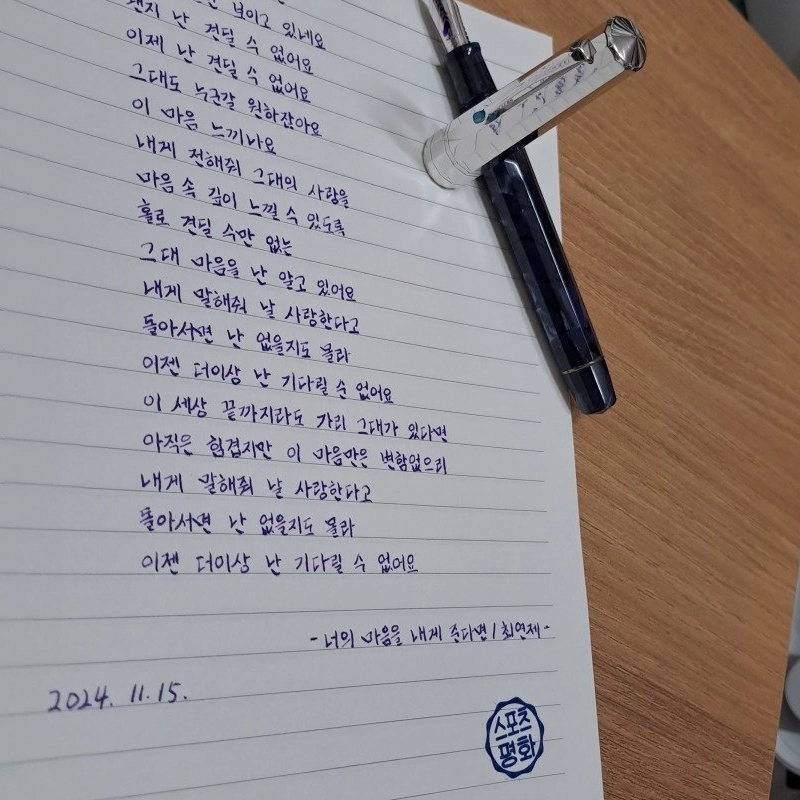 보이고 있네요
왠지 난 견딜 수 없어요
이제 난 견딜 수 없어요
그대도 누군갈 원하잖아요
이 마음 느끼나요
내게 전해줘 그대의 사랑을
마음 속 깊이 느낄 수 있도록
홀로 견딜 수만 없는
그대 마음을 난 알고 있어요
내게 말해줘 날 사랑한다고
돌아서면 난 없을지도 몰라
이젠 더이상 난 기다릴 순 없어요
이 세상 끝까지라도 가리 그대가 있다면
아직은 힘겹지만 이 마음만은 변함없으리
내게 말해줘 날 사랑한다고
돌아서면 난 없을지도 몰라
이젠 더이상 난 기다릴 수 없어요
- 너의 마음을 내게 준다면 / 최연제 -
2024. 11. 15.
스포츠
평화